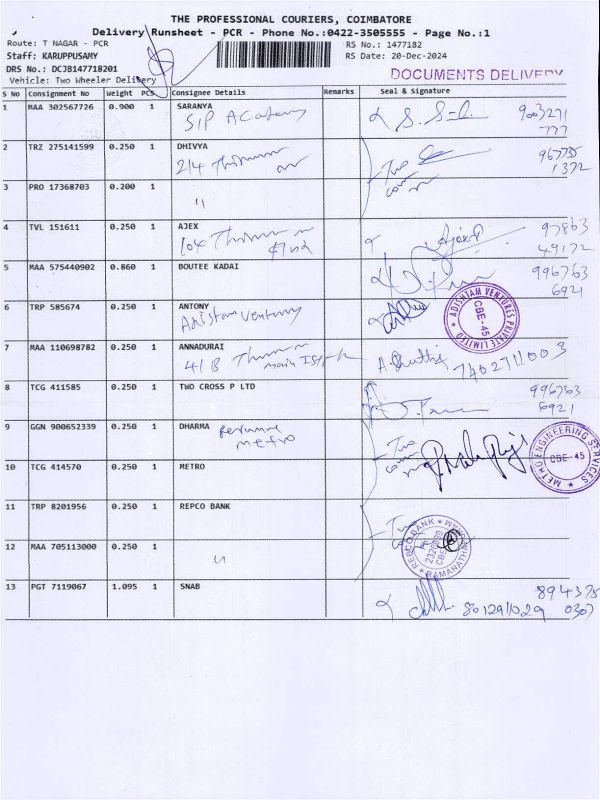 THE PROFESSIONAL COURIERS, COIMBATORE
Delivery Runsheet - PCR - Phone No.:0422-3505555 - Page No.:1
Route: T NAGAR - PCR
RS No.: 1477182
Staff: KARUPPUSAMY
RS Date: 20-Dec-2024
DRS No.: DCJB147718201
Vehicle: Two Wheeler Delivery
DOCUMENTS DELIVERY
S No Consignment No Weight PCS Consignee Details Remarks Seal & Signature
1 MAA 302567726 0.900 1 SARANYA
SIP Academy
2 TRZ 275141599 0.250 1 DHIVYA
214
1372
3 PRO 17368703 0.200 1
"
4 TVL 151611 0.250 1 AJEX
104
97863
49172
5 MAA 575440902 0.860 1 BOUTEE KADAI
996763
6921
6 TRP 585674 0.250 1 ANTONY
ADISHTAM VENTURES PRIVATE LIMITED
CBE-45
7 MAA 110698782 0.250 1 ANNADURAI
41B main
7402711003
8 TCG 411585 0.250 1 TWO CROSS P LTD
996763
6921
9 GGN 900652339 0.250 1 DHARMA
metro
METRO ENGINEERING SERVICES
CBE-45
10 TCG 414570 0.250 1 METRO
11 TRP 8201956 0.250 1 REPCO BANK
REPCO BANK
RAMANATHA
12 MAA 705113000 0.250 1
"
13 PGT 7119067 1.095 1 SNAB
8012911029
894375
0307